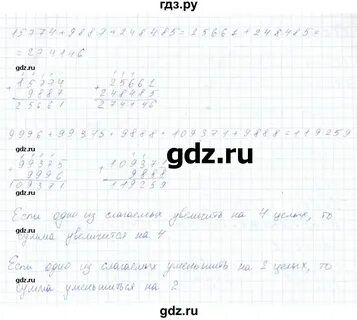 гдз.ру
15774+9887+248485=25661+248485=
=274146
+15774
9887
25661
+25661
248485
274146
9996+99375+9888=109371+9888=119259
gdz.ru
+99375
9996
109371
109371
9888
119259
Если одно из слагаемых увеличить на 4 целых, то
сумма увеличится на 4
Если одно из слагаемых уменьшить на 2 целых, то
сумма уменьшиться на 2
gdz.ru